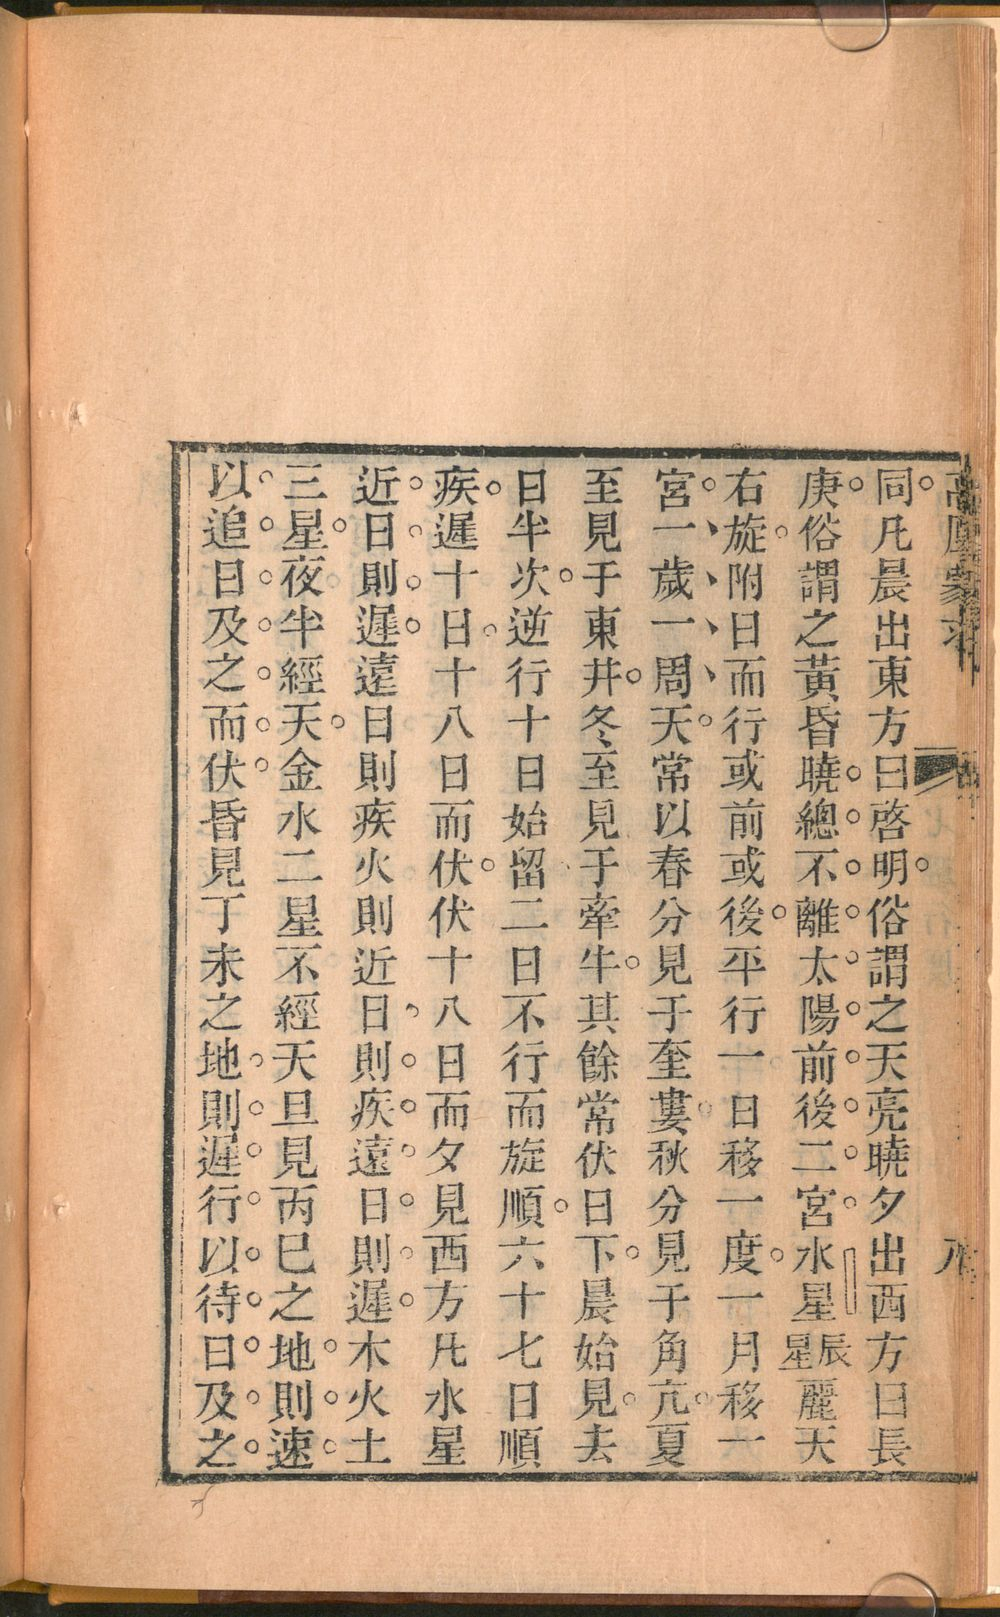 同凡晨出東方曰啓明俗謂之天亮曉夕出西方曰長
庚俗謂之黃昏曉總不離太陽前後二宮水星辰星麗天
右旋附日而行或前或後平行一日移一度一月移一
宮一歲一周天常以春分見于奎婁秋分見于角亢夏
至見于東井冬至見于牽牛其餘常伏日下晨始見去
日半次逆行十日始留二日不行而旋順六十七日順
疾遲十日十八日而伏伏十八日而夕見西方凡水星
近日則遲遠日則疾火則近日則疾遠日則遲木火土
三星夜半經天金水二星不經天旦見丙巳之地則速
以追日及之而伏昏見丁未之地則遲行以待日及之
八